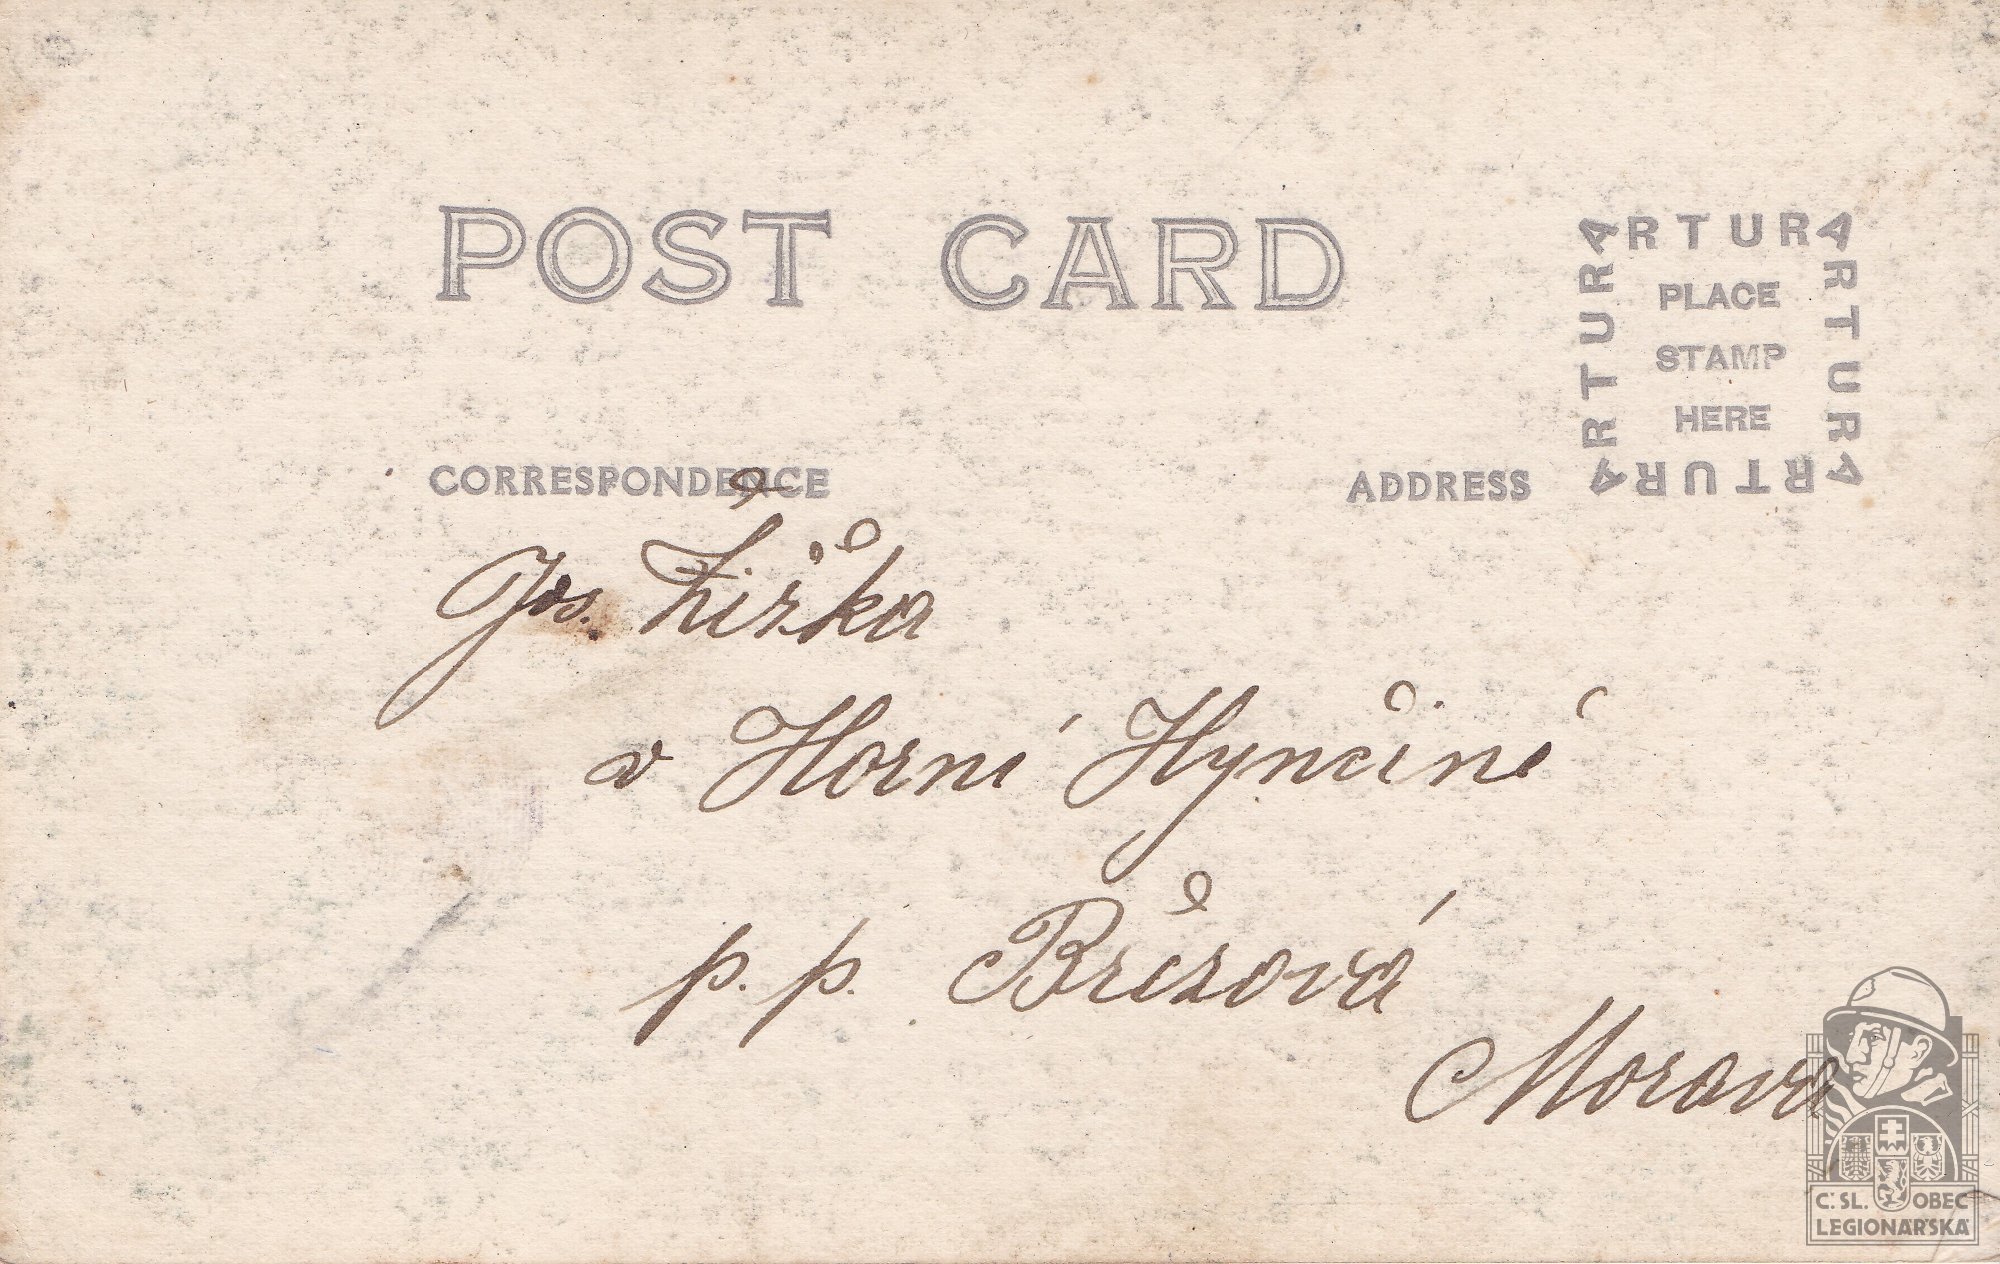 POST CARD
ARTURA
ARTURA
ARTURA
ARTURA
PLACE
STAMP
HERE
CORRESPONDENCE
ADDRESS
Jos. Žižka
v Horní Hynčině
p. p. Březová
Morava
Č. SL. OBEC
LEGIONÁŘSKÁ